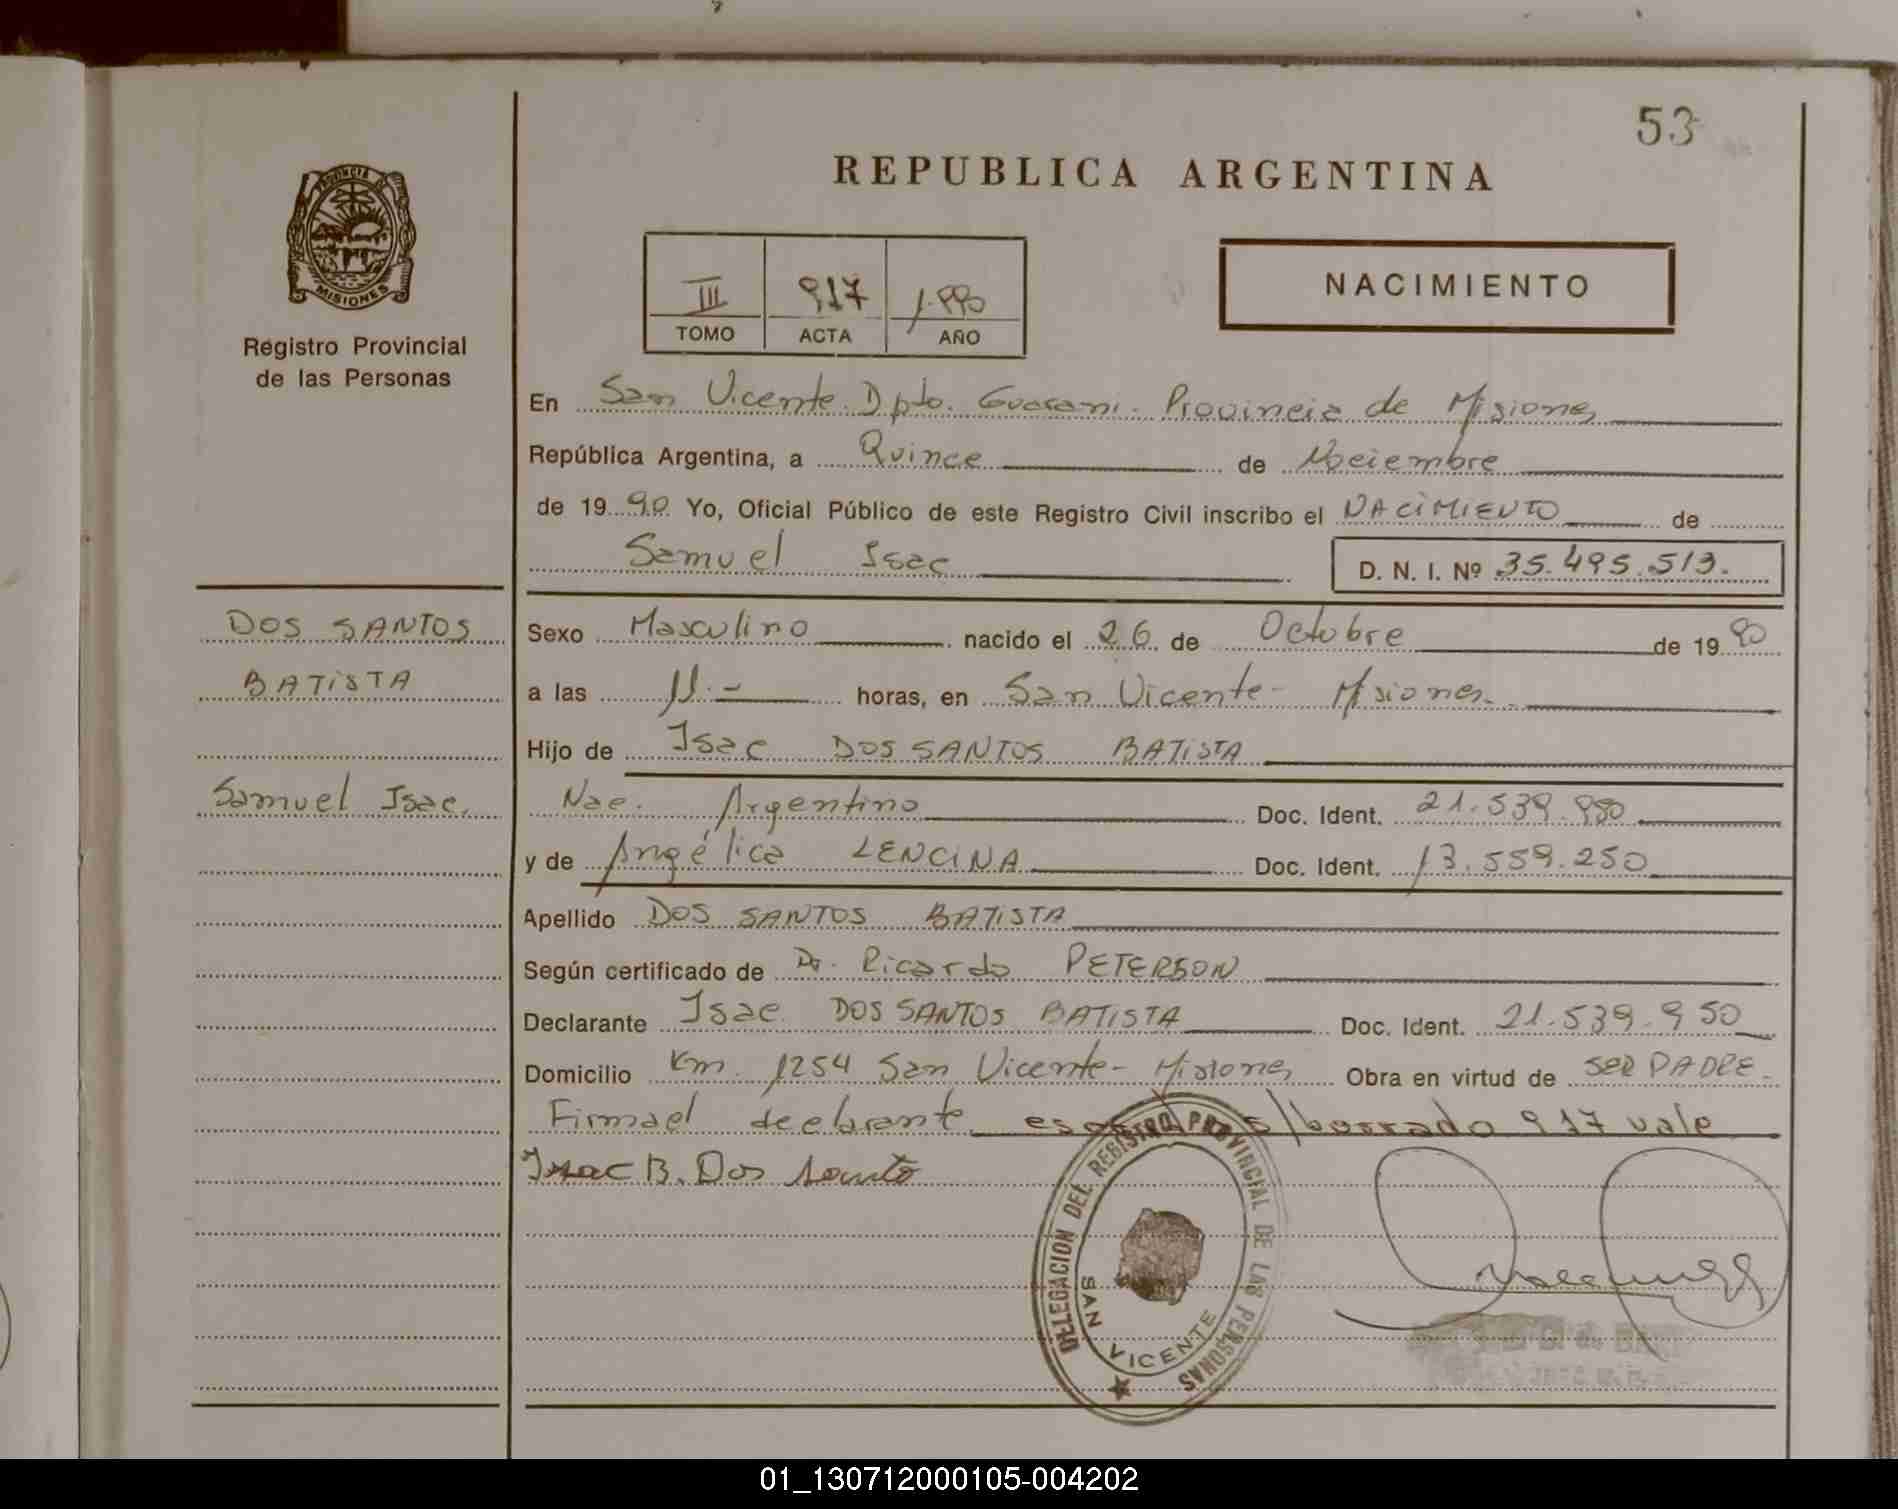 53
REPUBLICA ARGENTINA
PROVINCIA DE
MISIONES
Registro Provincial
de las Personas
III 917 1.990
TOMO ACTA AÑO
NACIMIENTO
En San Vicente. Dpto. Guarani. Provincia de Misiones
República Argentina, a Quince de Noviembre
de 1990 Yo, Oficial Público de este Registro Civil inscribo el NACIMIENTO de
Samuel Isac D. N. I. Nº 35.495.513.
DOS SANTOS
BATISTA
Samuel Isac.
Sexo Masculino nacido el 26 de Octubre de 1990
a las 11.- horas, en San Vicente - Misiones.
Hijo de Isac DOS SANTOS BATISTA
Nac. Argentino Doc. Ident. 21.539.950
y de Angélica LENCINA Doc. Ident. 13.559.250
Apellido DOS SANTOS BATISTA
Según certificado de Dr. Ricardo PETERSON
Declarante Isac DOS SANTOS BATISTA Doc. Ident. 21.539.950
Domicilio Km. 1254 San Vicente - Misiones Obra en virtud de SER PADRE -
Firma el declarante s/borrado 917 vale
Isac B. Dos Santo
DELEGACION DEL REGISTRO PROVINCIAL DE LAS PERSONAS
SAN VICENTE
01_130712000105-004202